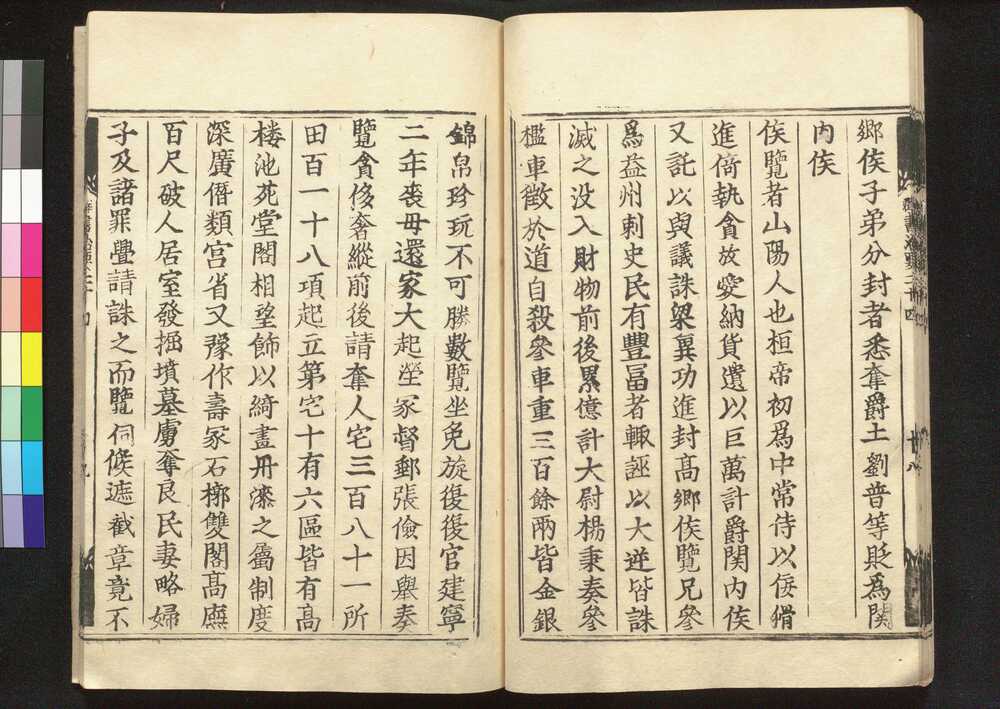 郷侯子弟分封者悉奪爵土劉普等貶為関
内侯
侯覽者山陽人也桓帝初爲中常侍以佞猾
進倚執貪放受納貨遺以巨萬計爵関内侯
又託以與議誅梁兾功進封髙郷侯覽兄參
爲益州刺史民有豐冨者輙誣以大逆皆誅
滅之没入財物前後累億計大尉楊秉奏參
檻車徴於道自殺參車重三百餘兩皆金銀
錦帛珍玩不可勝數覽坐免旋復復官建寧
二年喪母還家大起塋冢督郵張儉因舉奏
覽貪侈奢縱前後請奪人宅三百八十一所
田百一十八項起立第宅十有六區皆有髙
楼池苑堂閣相望飾以綺畫丹漆之屬制度
深廣僭類宮省又豫作壽冢石槨雙閣髙廡
百尺破人居室發掘墳墓虜奪良民妻略婦
子及諸罪舋請誅之而覽伺候遮截章竟不